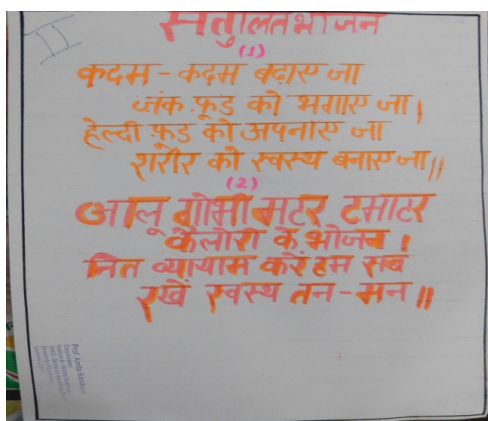 संतुलित भोजन
(1)
कदम - कदम बढ़ाए जा
जंक फूड को भगाए जा ।
हेल्दी फूड को अपनाए जा
शरीर को स्वस्थ बनाए जा ॥
(2)
आलू गोभी मटर टमाटर
कैलोरी के भोजन ।
नित व्यायाम करें हम सब
रखें स्वस्थ तन - मन ॥